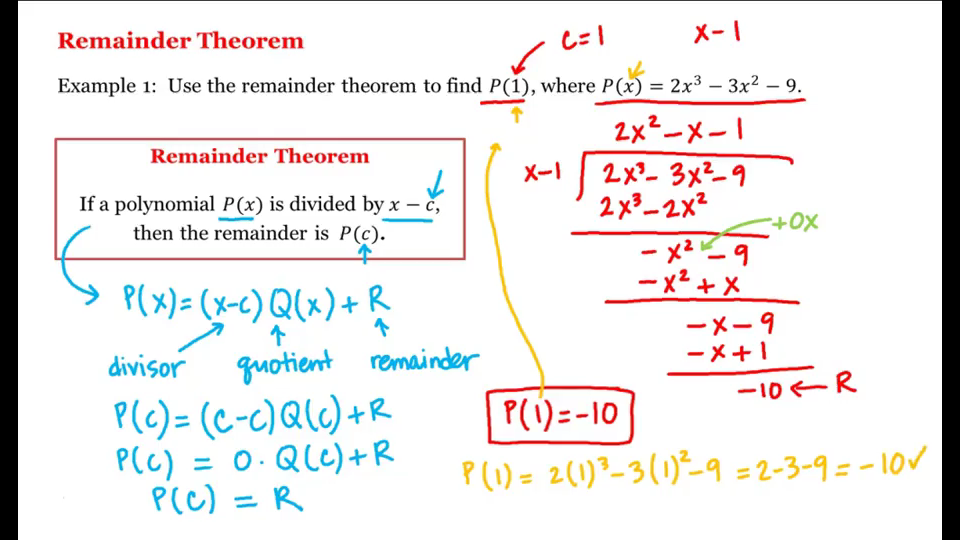 Remainder Theorem
c=1
x-1
Example 1: Use the remainder theorem to find P(1), where P(x) = 2x³ − 3x² − 9.
Remainder Theorem
If a polynomial P(x) is divided by x − c,
then the remainder is P(c).
P(x)=(x-c)Q(x)+R
divisor quotient remainder
P(c)=(c-c)Q(c)+R
P(c) = 0·Q(c)+R
P(c) = R
2x²-x-1
x-1 2x³-3x²-9
2x³-2x²
+0x
-x²-9
-x²+x
-x-9
-x+1
-10 ← R
P(1)=-10
P(1)=2(1)³-3(1)²-9=2-3-9=-10✓